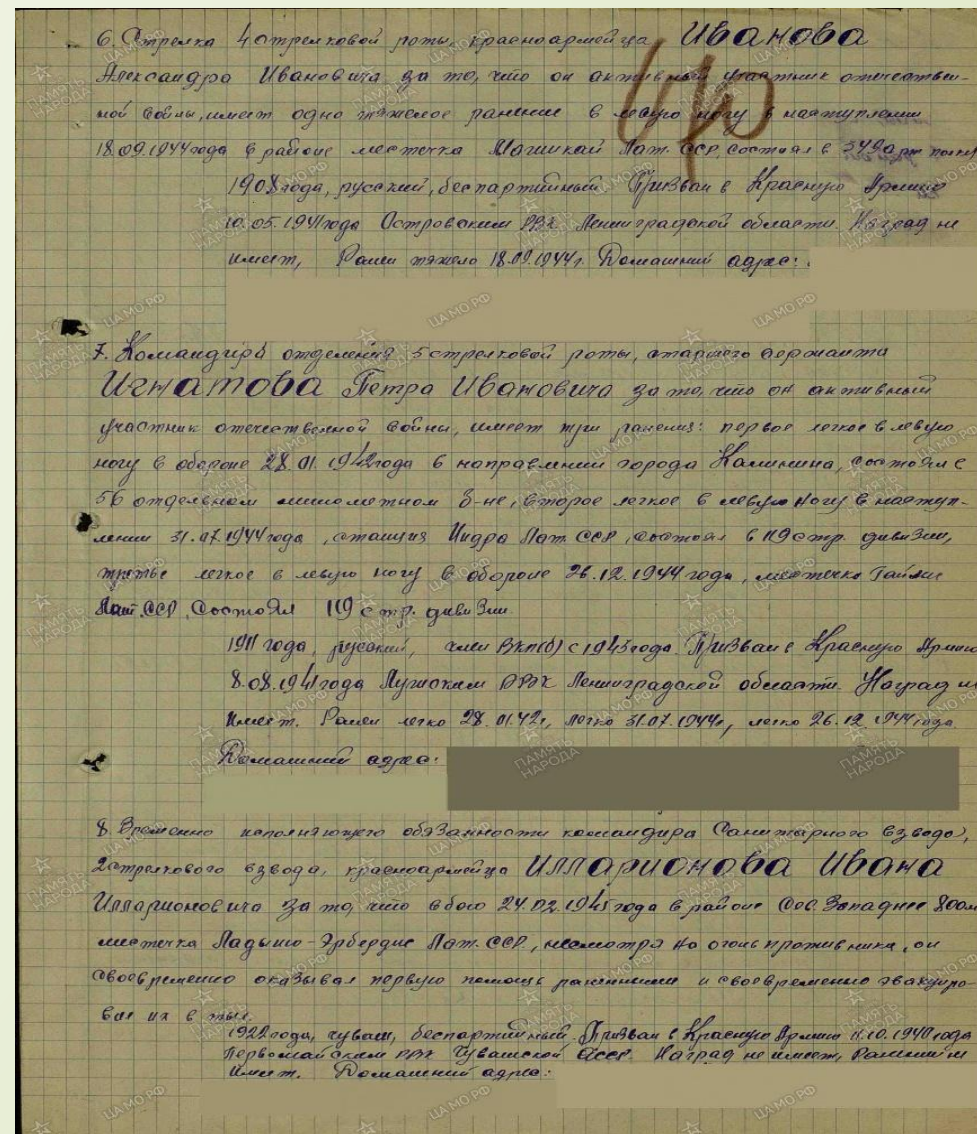 6. Стрелка 4 стрелковой роты, красноармейца Иванова
Александра Ивановича за то, что он активный участник отечествен-
ной войны, имеет одно тяжелое ранение в левую ногу в наступлении
18.09.1944 года в районе местечка Лат. ССР, состоял в полку
1908 года, русский, беспартийный. Призван в Красную Армию
10.05.1941 года Островским РВК Ленинградской области. Наград не
имеет, Ранен тяжело 18.09.1944 г. Домашний адрес:
7. Командира отделения 5 стрелковой роты, старшего сержанта
Игнатова Петра Ивановича за то, что он активный
участник отечественной войны, имеет три ранения: первое легкое в левую
ногу в обороне 28.01.1942 года в направлении города Калинина, состоял в
56 отдельном минометном б-не, второе легкое в левую ногу в наступ-
лении 31.07.1944 года, станция Индра Лат. ССР, состоял в 119 стр. дивизии,
третье легкое в левую ногу в обороне 26.12.1944 года, местечко Лат. ССР, Состоял 119 стр. дивизии.
1911 года, русский, член ВКП(б) с 1943 года. Призван в Красную Армию
8.08.1941 года РВК Ленинградской области. Наград не
имеет. Ранен легко 28.01.42 г, легко 31.07.1944 г, легко 26.12.1944 года
Домашний адрес:
8. Временно исполняющего обязанности командира Санитарного взвода,
2 стрелкового взвода, красноармейца Илларионова Ивана
Илларионовича за то, что в бою 24.02.1945 года в районе Сев. Западнее 800 м
местечка Лат. ССР, несмотря на огонь противника, он
своевременно оказывал первую помощь раненным и своевременно эвакуиро-
вал их в тыл.
1922 года, чуваш, беспартийный. Призван в Красную Армию 11.10.1941 года
Первомайским РВК Чувашской АССР. Наград не имеет, Ранений не
имеет. Домашний адрес:
ПАМЯТЬ НАРОДА
ЦАМО.РФ